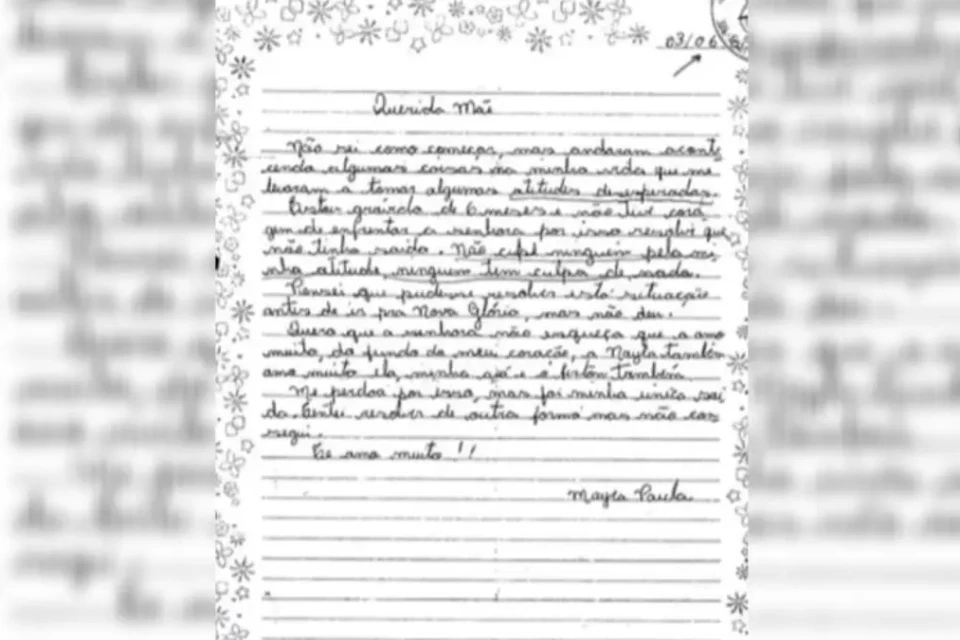 03/06
Querida Mãe
Não sei como começar, mas andaram aconte
cendo algumas coisas na minha vida que me
levaram a tomar algumas atitudes desesperadas.
Estou grávida de 6 meses e não tive cora
gem de enfrentar a senhora por isso resolvi que
não tinha saída. Não culpe ninguém pela mi
nha atitude, ninguém tem culpa de nada.
Pensei que pudesse resolver esta situação
antes de ir pra Nova Glória, mas não deu.
Quero que a senhora não esqueça que a amo
muito, do fundo do meu coração, a Nayla também
amo muito ela, minha avó e o também.
Me perdoa por isso, mas foi minha única saí
da. Tentei resolver de outra forma mas não con
segui.
Te amo muito!!
Paula